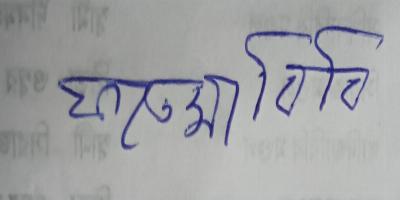 ফাতেমা বিবি